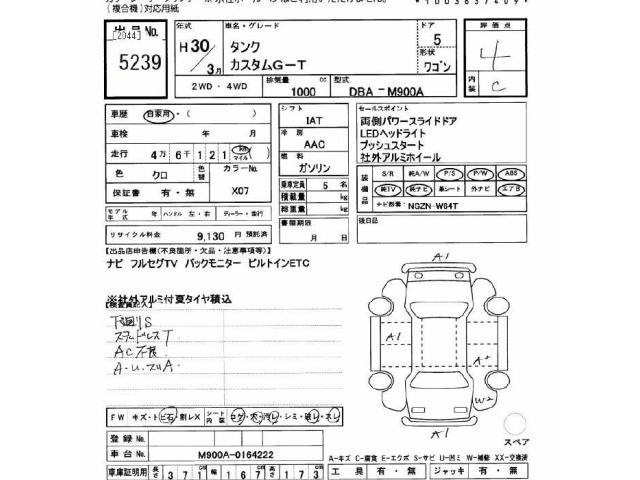 (複合機)対応用紙
出品 No. 年式 車名・グレード ドア 評価点
[2044] H30/3月 タンク 5 4
5239 カスタムG-T 形状 ワゴン
2WD・4WD 排気量 1000 cc 型式 DBA-M900A 内装 C
車歴 自家用・( ) シフト IAT セールスポイント
車検 年 月 冷房 AAC 両側パワースライドドア
走行 4万6千121 km マイル ( ) 燃料 ガソリン LEDヘッドライト
色 クロ 色替 カラーNo. X07 プッシュスタート
保証書 有・無 社外アルミホイール
乗車定員 5 名
積載量 kg
総重量 kg
装備品 S/R 純A/W P/S P/W ABS
純TV 純ナビ 革シート 外ナビ エアB
ナビ型番: NSZN-W64T
モデル年式 年 ハンドル 左・右 ディーラー・並行 書類期限 月 日 後日品
リサイクル料金 9,130 円 預託済
【出品店申告欄(不良箇所・欠品・注意事項等)】
ナビ フルセグTV バックモニター ビルトインETC
※社外アルミ付夏タイヤ積込
【検査員記入】
下回りS
スタッドレスT
A・U・ズリA
A1
A1
A2
W2
A1
スペア
FW キズ・トビ石・割レX シート内装 コゲ・穴・汚レ・シミ・破レ・スレ
登録No.
車台No. M900A-0164222
A-キズ C-腐食 E-エクボ S-サビ U-凹ミ W-補修 XX-交換済
車庫証明用 長さ 371 cm 幅 167 cm 高さ 173 cm 工具 有・無 ジャッキ 有・無